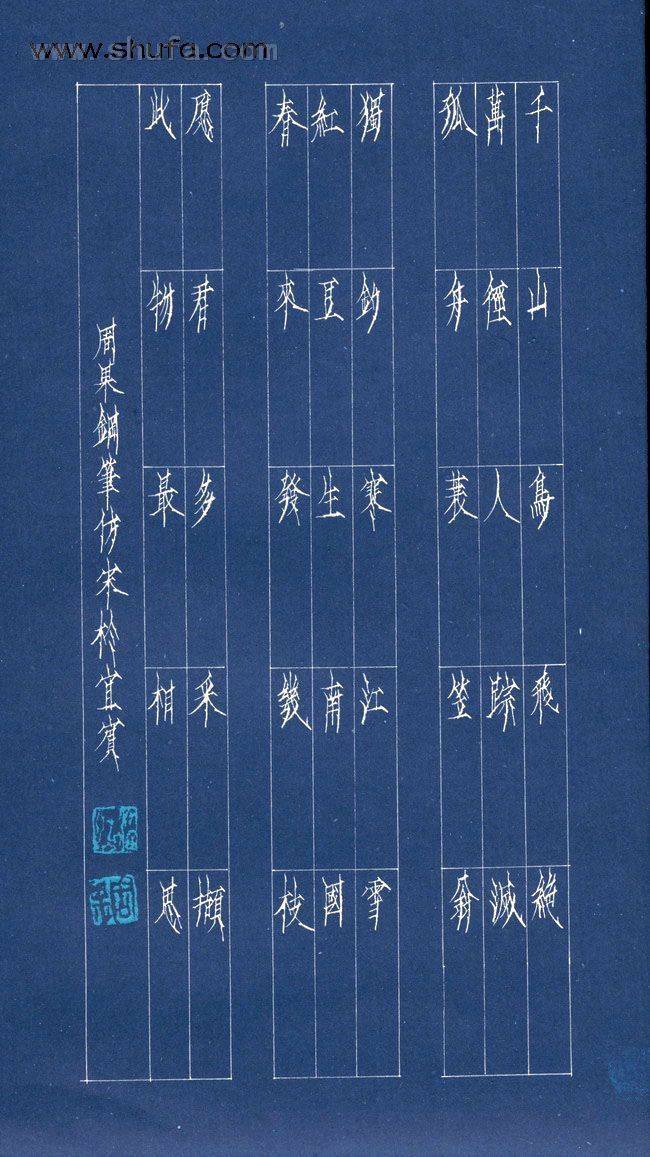 www.shufa.com
千山鳥飛絶
萬徑人踪滅
孤舟蓑笠翁
獨釣寒江雪
紅豆生南國
春來發幾枝
愿君多采擷
此物最相思
周果鋼筆仿宋於宜賓